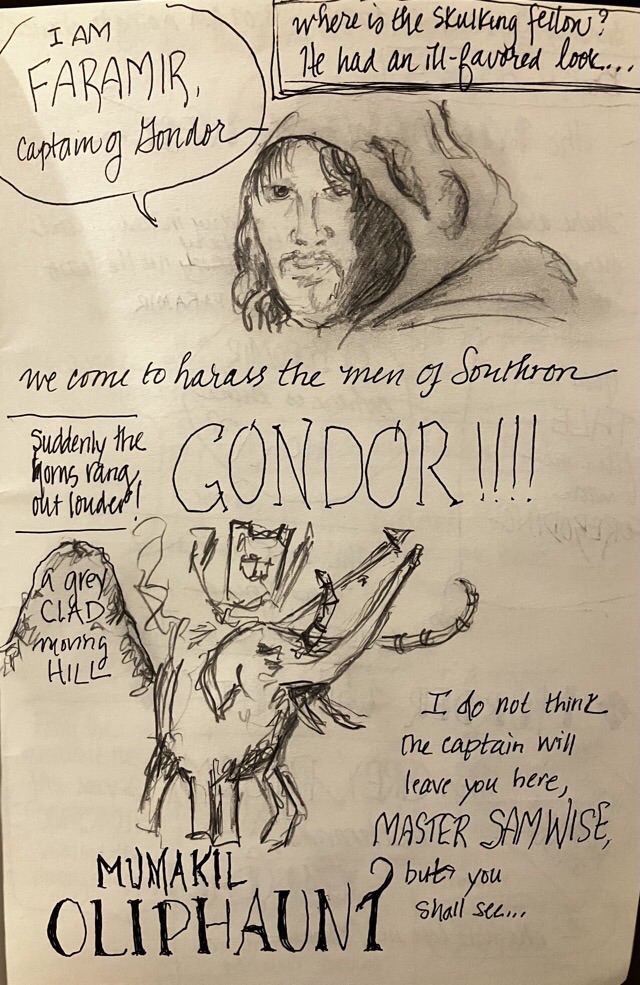 I AM
FARAMIR,
Captain of Gondor
where is the skulking fellow?
He had an ill-favored look...
we come to harass the men of Southron
Suddenly the
horns rang
out louder!
GONDOR !!!!
a grey
CLAD
moving
HILL
I do not think
the captain will
leave you here,
MASTER SAMWISE,
but you
shall see...
MUMAKIL
OLIPHAUNT